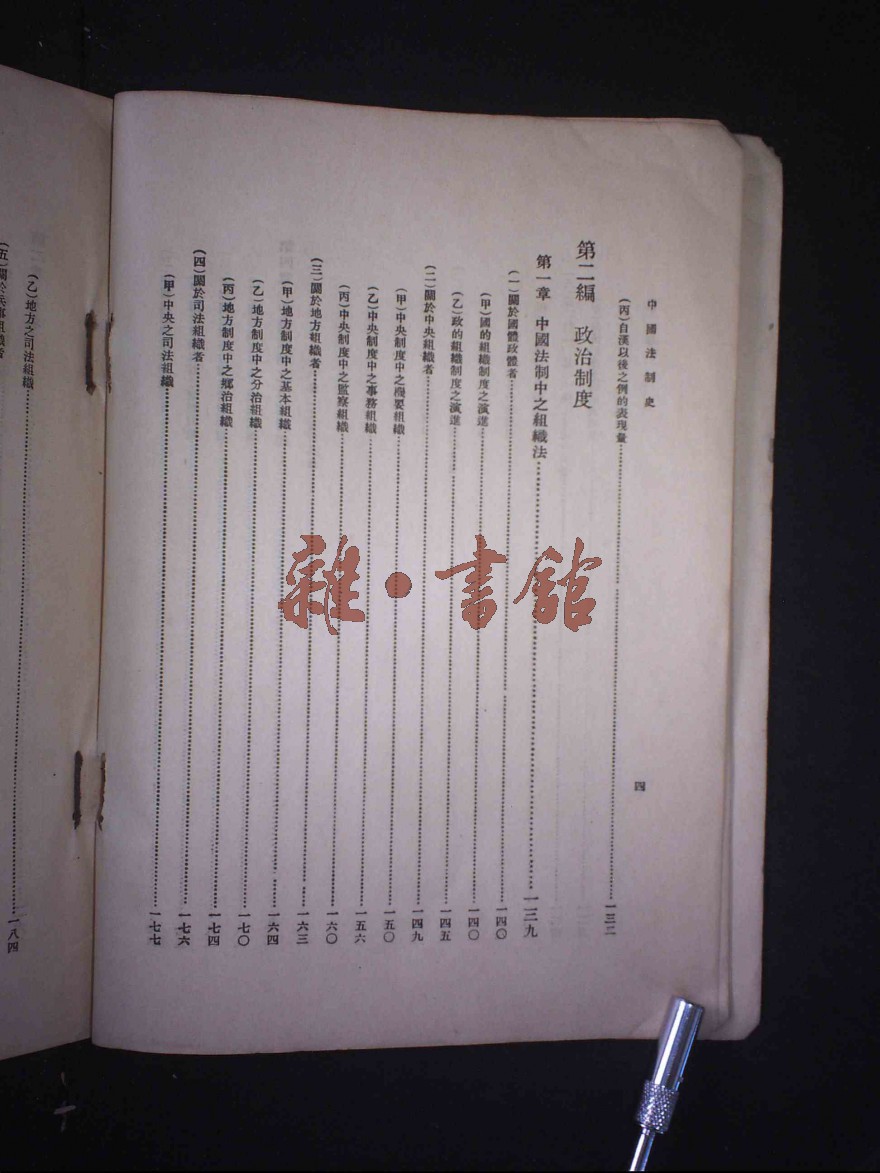 中國法制史
四
(丙)自漢以後之例的表現量……一三二
第二編 政治制度
第一章 中國法制中之組織法……一三九
(一)關於國體政體者……一四〇
(甲)國的組織制度之演進……一四〇
(乙)政的組織制度之演進……一四五
(二)關於中央組織者……一四九
(甲)中央制度中之機要組織……一五〇
(乙)中央制度中之事務組織……一五六
(丙)中央制度中之監察組織……一六〇
(三)關於地方組織者……一六三
(甲)地方制度中之基本組織……一六四
(乙)地方制度中之分治組織……一七〇
(丙)地方制度中之鄉治組織……一七四
(四)關於司法組織者……一七六
(甲)中央之司法組織……一七七
(乙)地方之司法組織……一八四
(五)關於兵事組織者
雜·書館